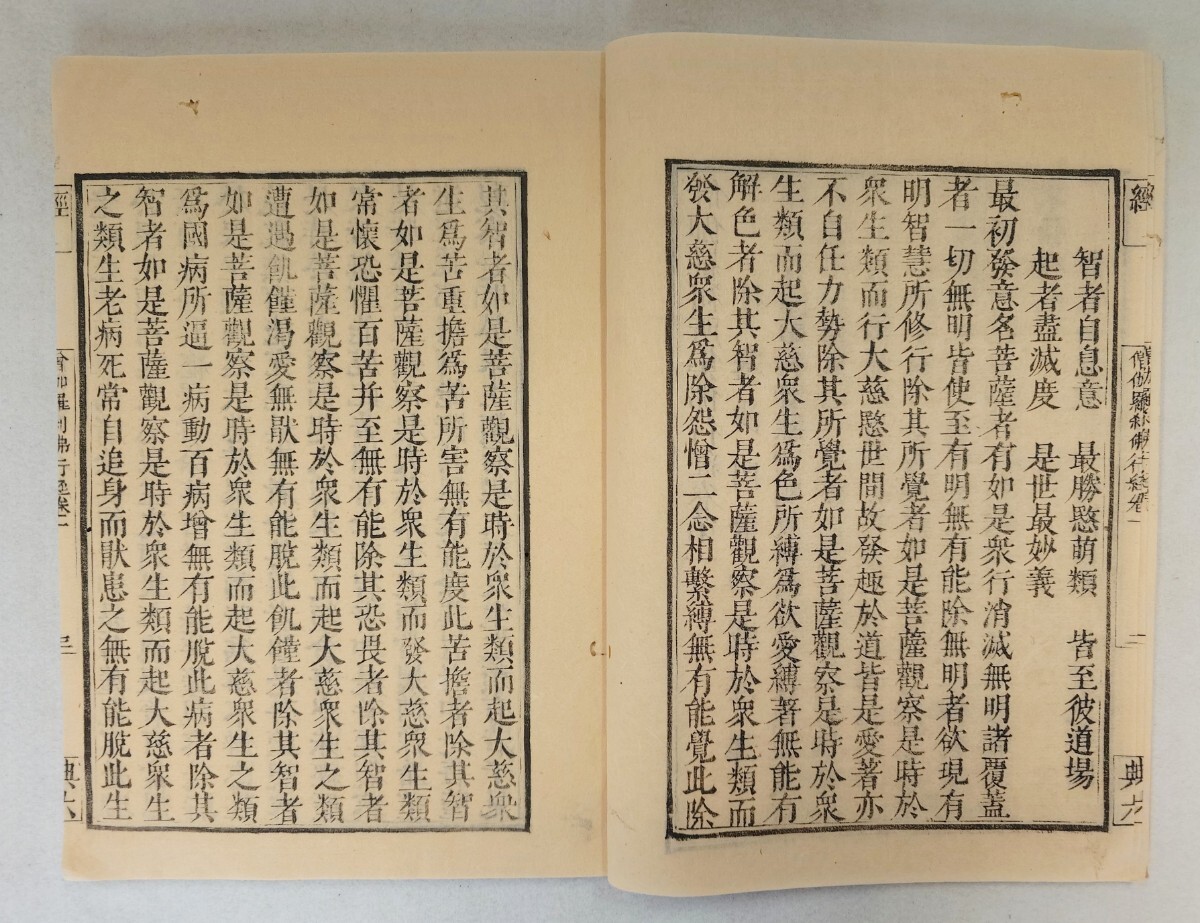 經
僧伽羅刹佛行經卷一
二
典六
智者自息意　最勝愍萌類　皆至彼道場
起者盡滅度　是世最妙義
最初發意名菩薩者有如是衆行消滅無明諸覆蓋
者一切無明皆使至有明無有能除無明者欲現有
明智慧所修行除其所覺者如是菩薩觀察是時於
衆生類而行大慈愍世間故發趣於道皆是愛著亦
不自任力勢除其所覺者如是菩薩觀察是時於衆
生類而起大慈衆生爲色所縛爲欲愛縛著無能有
解色者除其智者如是菩薩觀察是時於衆生類而
發大慈衆生爲除怨憎二念相繫縛無有能覺此除
其智者如是菩薩觀察是時於衆生類而起大慈衆
生爲苦重擔爲苦所害無有能度此苦擔者除其智
者如是菩薩觀察是時於衆生類而發大慈衆生
常懷恐懼百苦并至無有能除其恐畏者除其智者
如是菩薩觀察是時於衆生類而起大慈衆生之類
遭遇飢饉渴愛無猒無有能脫此飢饉者除其智者
如是菩薩觀察是時於衆生類而起大慈衆生之類
爲國病所逼一病動百病增無有能脫此病者除其
智者如是菩薩觀察是時於衆生類而起大慈衆生
之類生老病死常自追身而猒患之無有能脫此生
經
三
典六